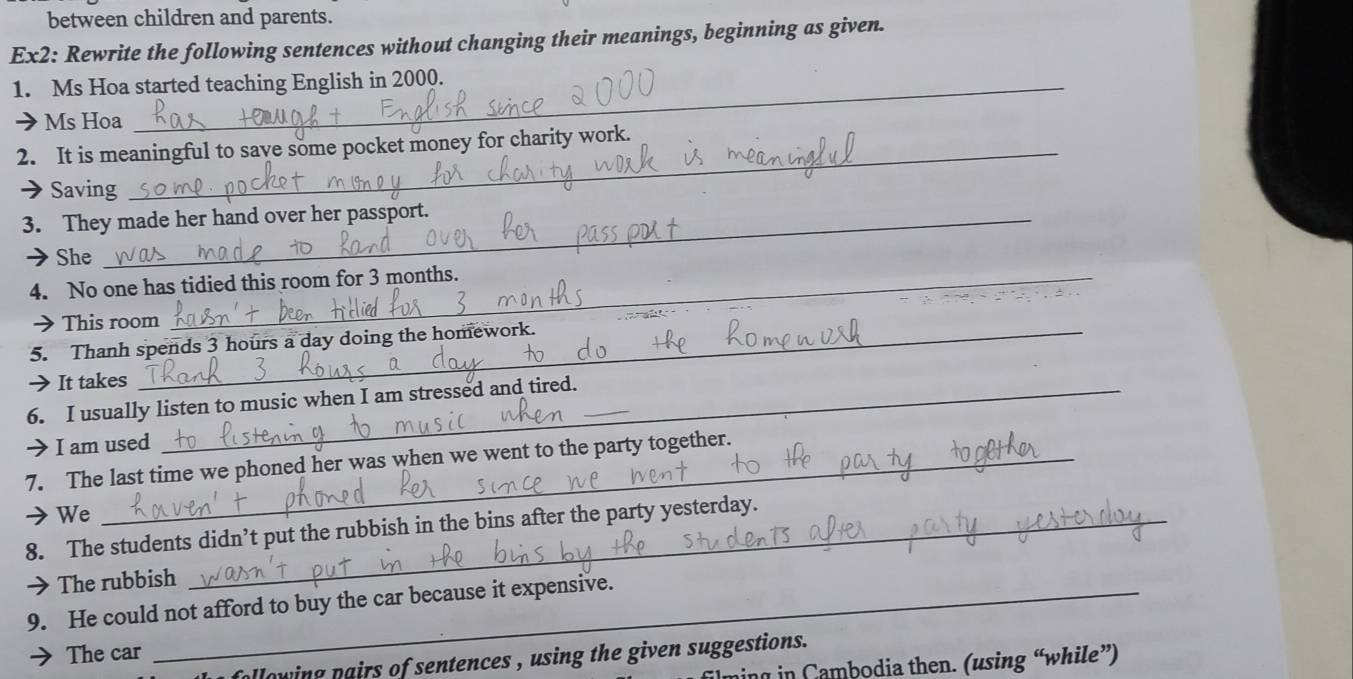 between children and parents.
Ex2: Rewrite the following sentences without changing their meanings, beginning as given.
1. Ms Hoa started teaching English in 2000.
→ Ms Hoa has taught English since 2000
2. It is meaningful to save some pocket money for charity work.
→ Saving some pocket money for charity work is meaningful
3. They made her hand over her passport.
→ She was made to hand over her passport
4. No one has tidied this room for 3 months.
→ This room hasn't been tidied for 3 months
5. Thanh spends 3 hours a day doing the homework.
→ It takes Thanh 3 hours a day to do the homework
6. I usually listen to music when I am stressed and tired.
→ I am used to listening to music when —
7. The last time we phoned her was when we went to the party together.
→ We haven't phoned her since we went to the party together
8. The students didn't put the rubbish in the bins after the party yesterday.
→ The rubbish wasn't put in the bins by the students after party yesterday
9. He could not afford to buy the car because it expensive.
→ The car
following pairs of sentences , using the given suggestions.
in Cambodia then. (using “while”)